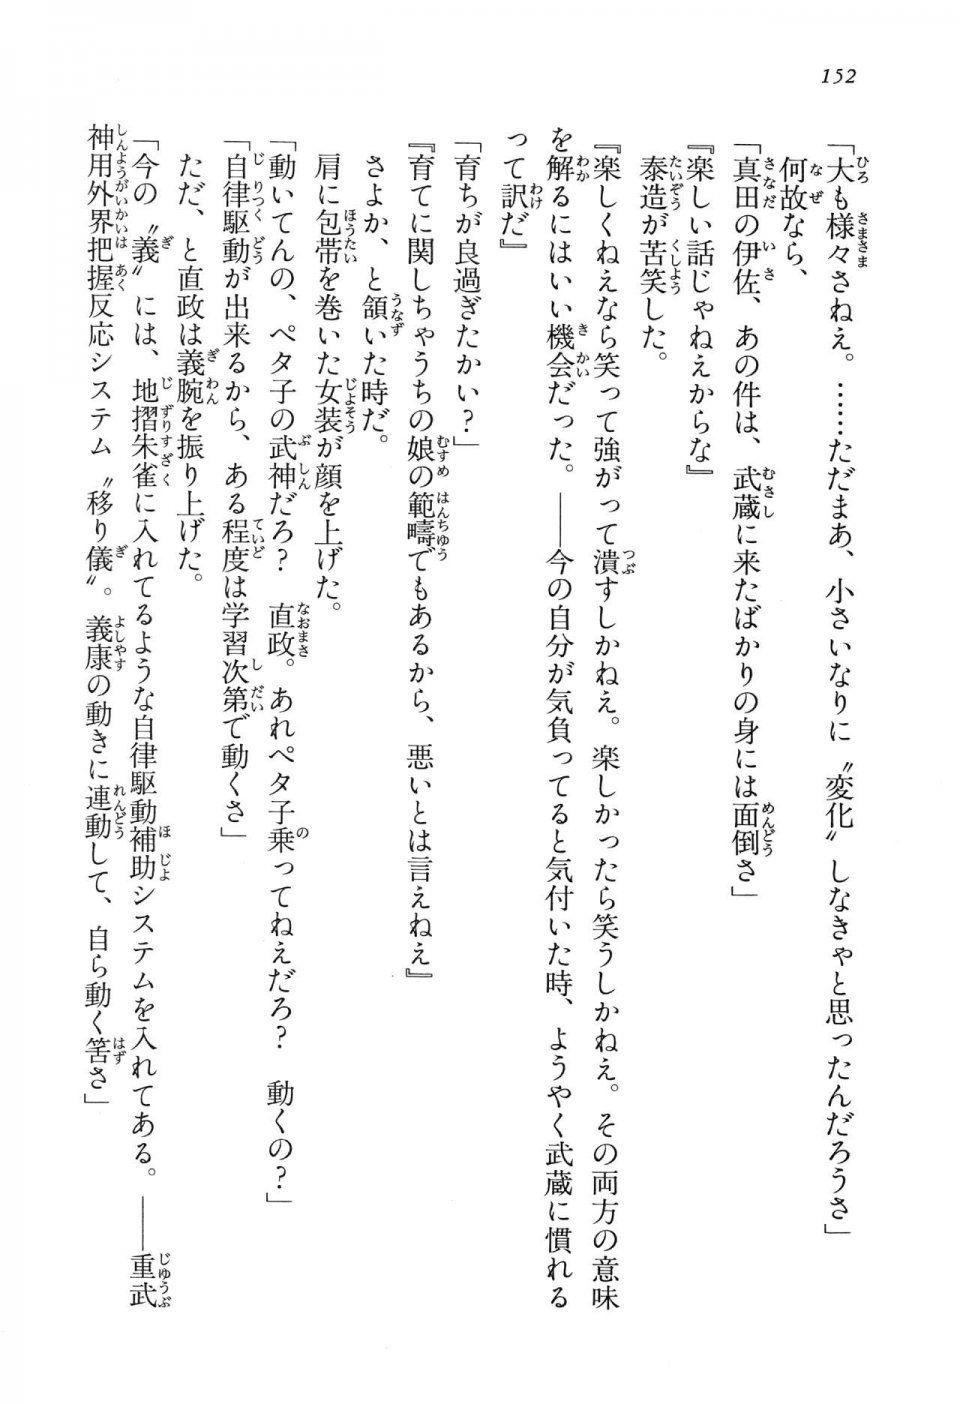 152
「大も様々さねえ。……ただまあ、小さいなりに〝変化〟しなきゃと思ったんだろうさ」
何故なら、
「真田の伊佐、あの件は、武蔵に来たばかりの身には面倒さ」
『楽しい話じゃねえからな』
泰造が苦笑した。
『楽しくねえなら笑って強がって潰すしかねえ。楽しかったら笑うしかねえ。その両方の意味
を解るにはいい機会だった。――今の自分が気負ってると気付いた時、ようやく武蔵に慣れる
って訳だ』
「育ちが良過ぎたかい？」
『育てに関しちゃうちの娘の範疇でもあるから、悪いとは言えねえ』
さよか、と頷いた時だ。
肩に包帯を巻いた女装が顔を上げた。
「動いてんの、ペタ子の武神だろ？　直政。あれペタ子乗ってねえだろ？　動くの？」
「自律駆動が出来るから、ある程度は学習次第で動くさ」
ただ、と直政は義腕を振り上げた。
「今の〝義〟には、地摺朱雀に入れてるような自律駆動補助システムを入れてある。――重武
神用外界把握反応システム〝移り儀〟。義康の動きに連動して、自ら動く筈さ」